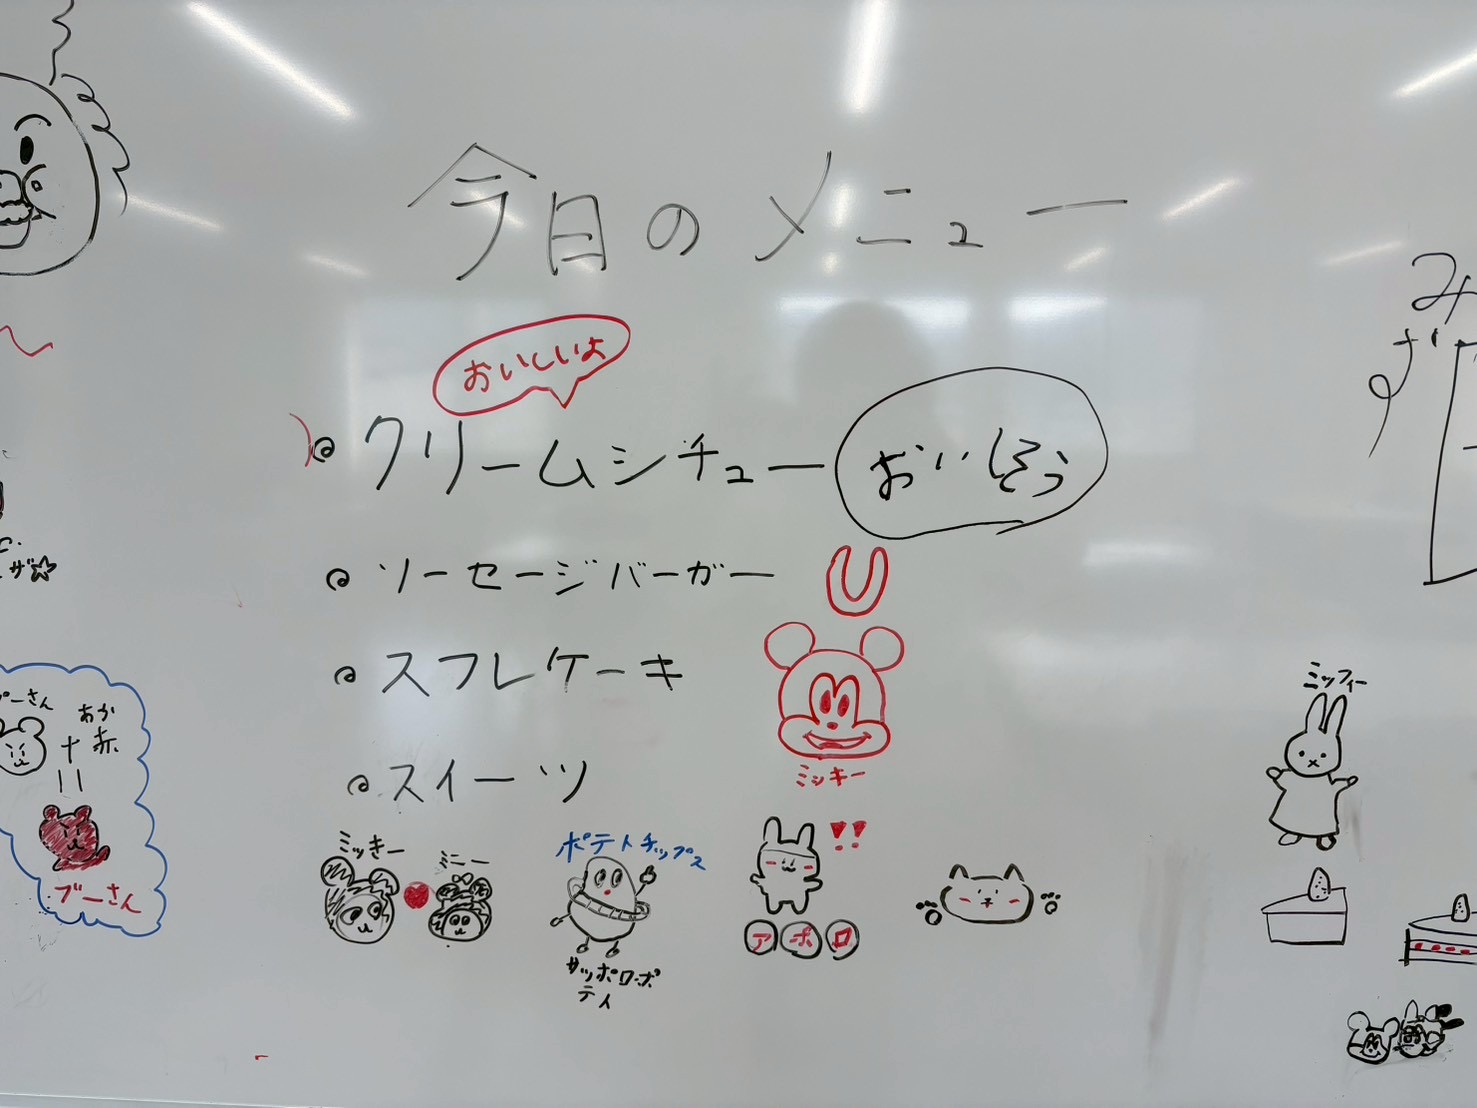 今日のメニュー
おいしいよ
クリームシチュー
おいしそう
ソーセージバーガー
スフレケーキ
スイーツ
ミッキー
ミッフィー
プーさん
あか
赤
ブーさん
ミッキー
ミニー
ポテトチップス
サッポロポ
テイ
!!
アポロ
み